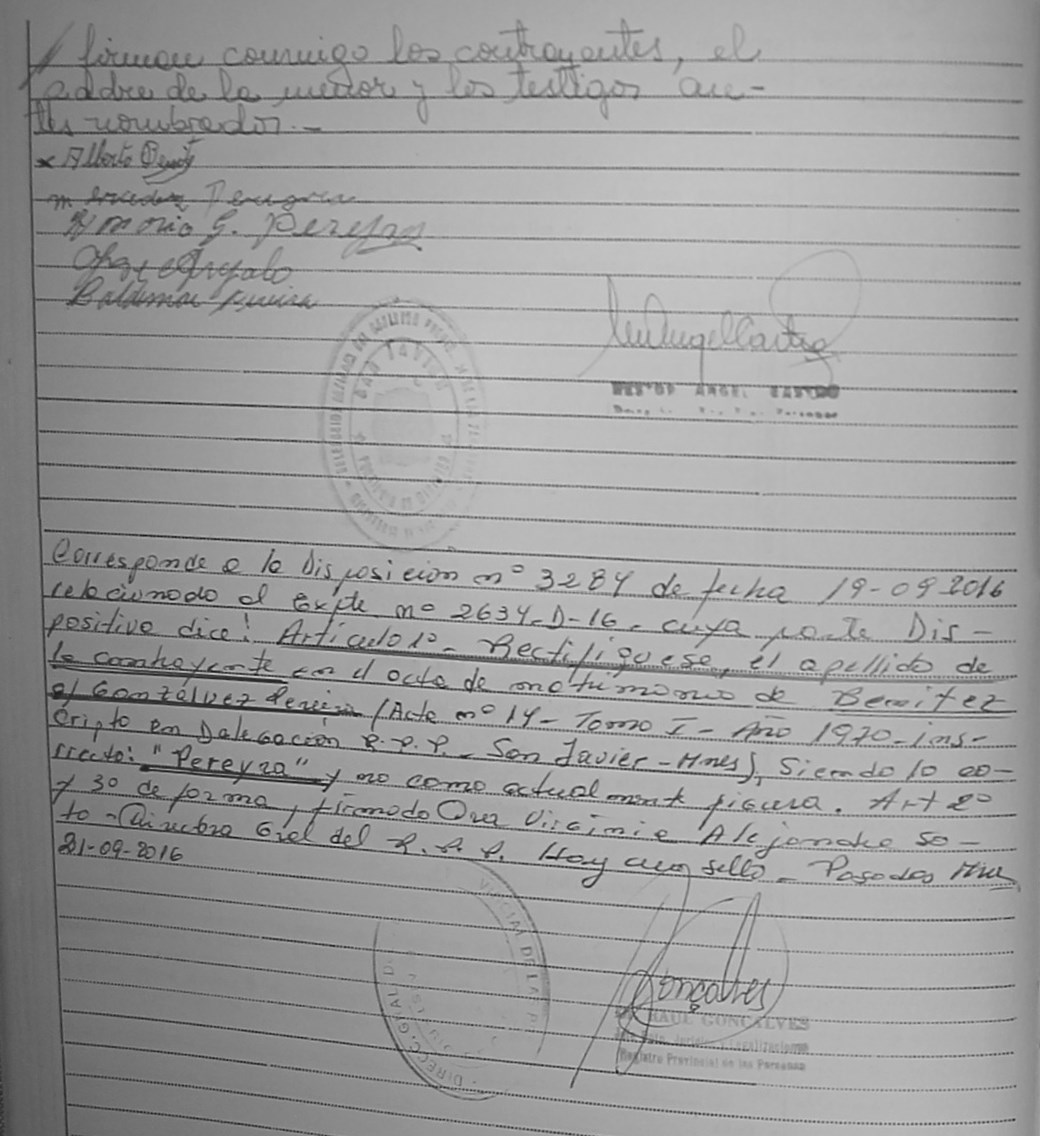 firman conmigo los contrayentes, el
padre de la menor y los testigos an-
tes nombrados.-
x Alberto
G. Pereyra
Baldimar
NESTOR ANGEL CASTRO
Corresponde a la Disposición nº 3284 de fecha 19-09-2016
relacionado al Expte nº 2634-D-16. cuya parte Dis-
positiva dice: Artículo 1º- Rectifiquese, el apellido de
la contrayente en el acta de matrimonio de Benitez
c/ Gonzalvez Pereira (Acta nº 14- Tomo I- Año 1970- ins-
cripto en Delegación R.P.P. San Javier-Mnes), Siendo lo co-
rrecto: "Pereyra" y no como actualmente figura. Art 2º
y 3º de forma, firmado Dra Virginia Alejandra So-
to - Directora Gral del R.P.P. Hay un sello- Posadas Mnes
21-09-2016
Gonçalves
RAUL GONCALVES
Registro Provincial de las Personas